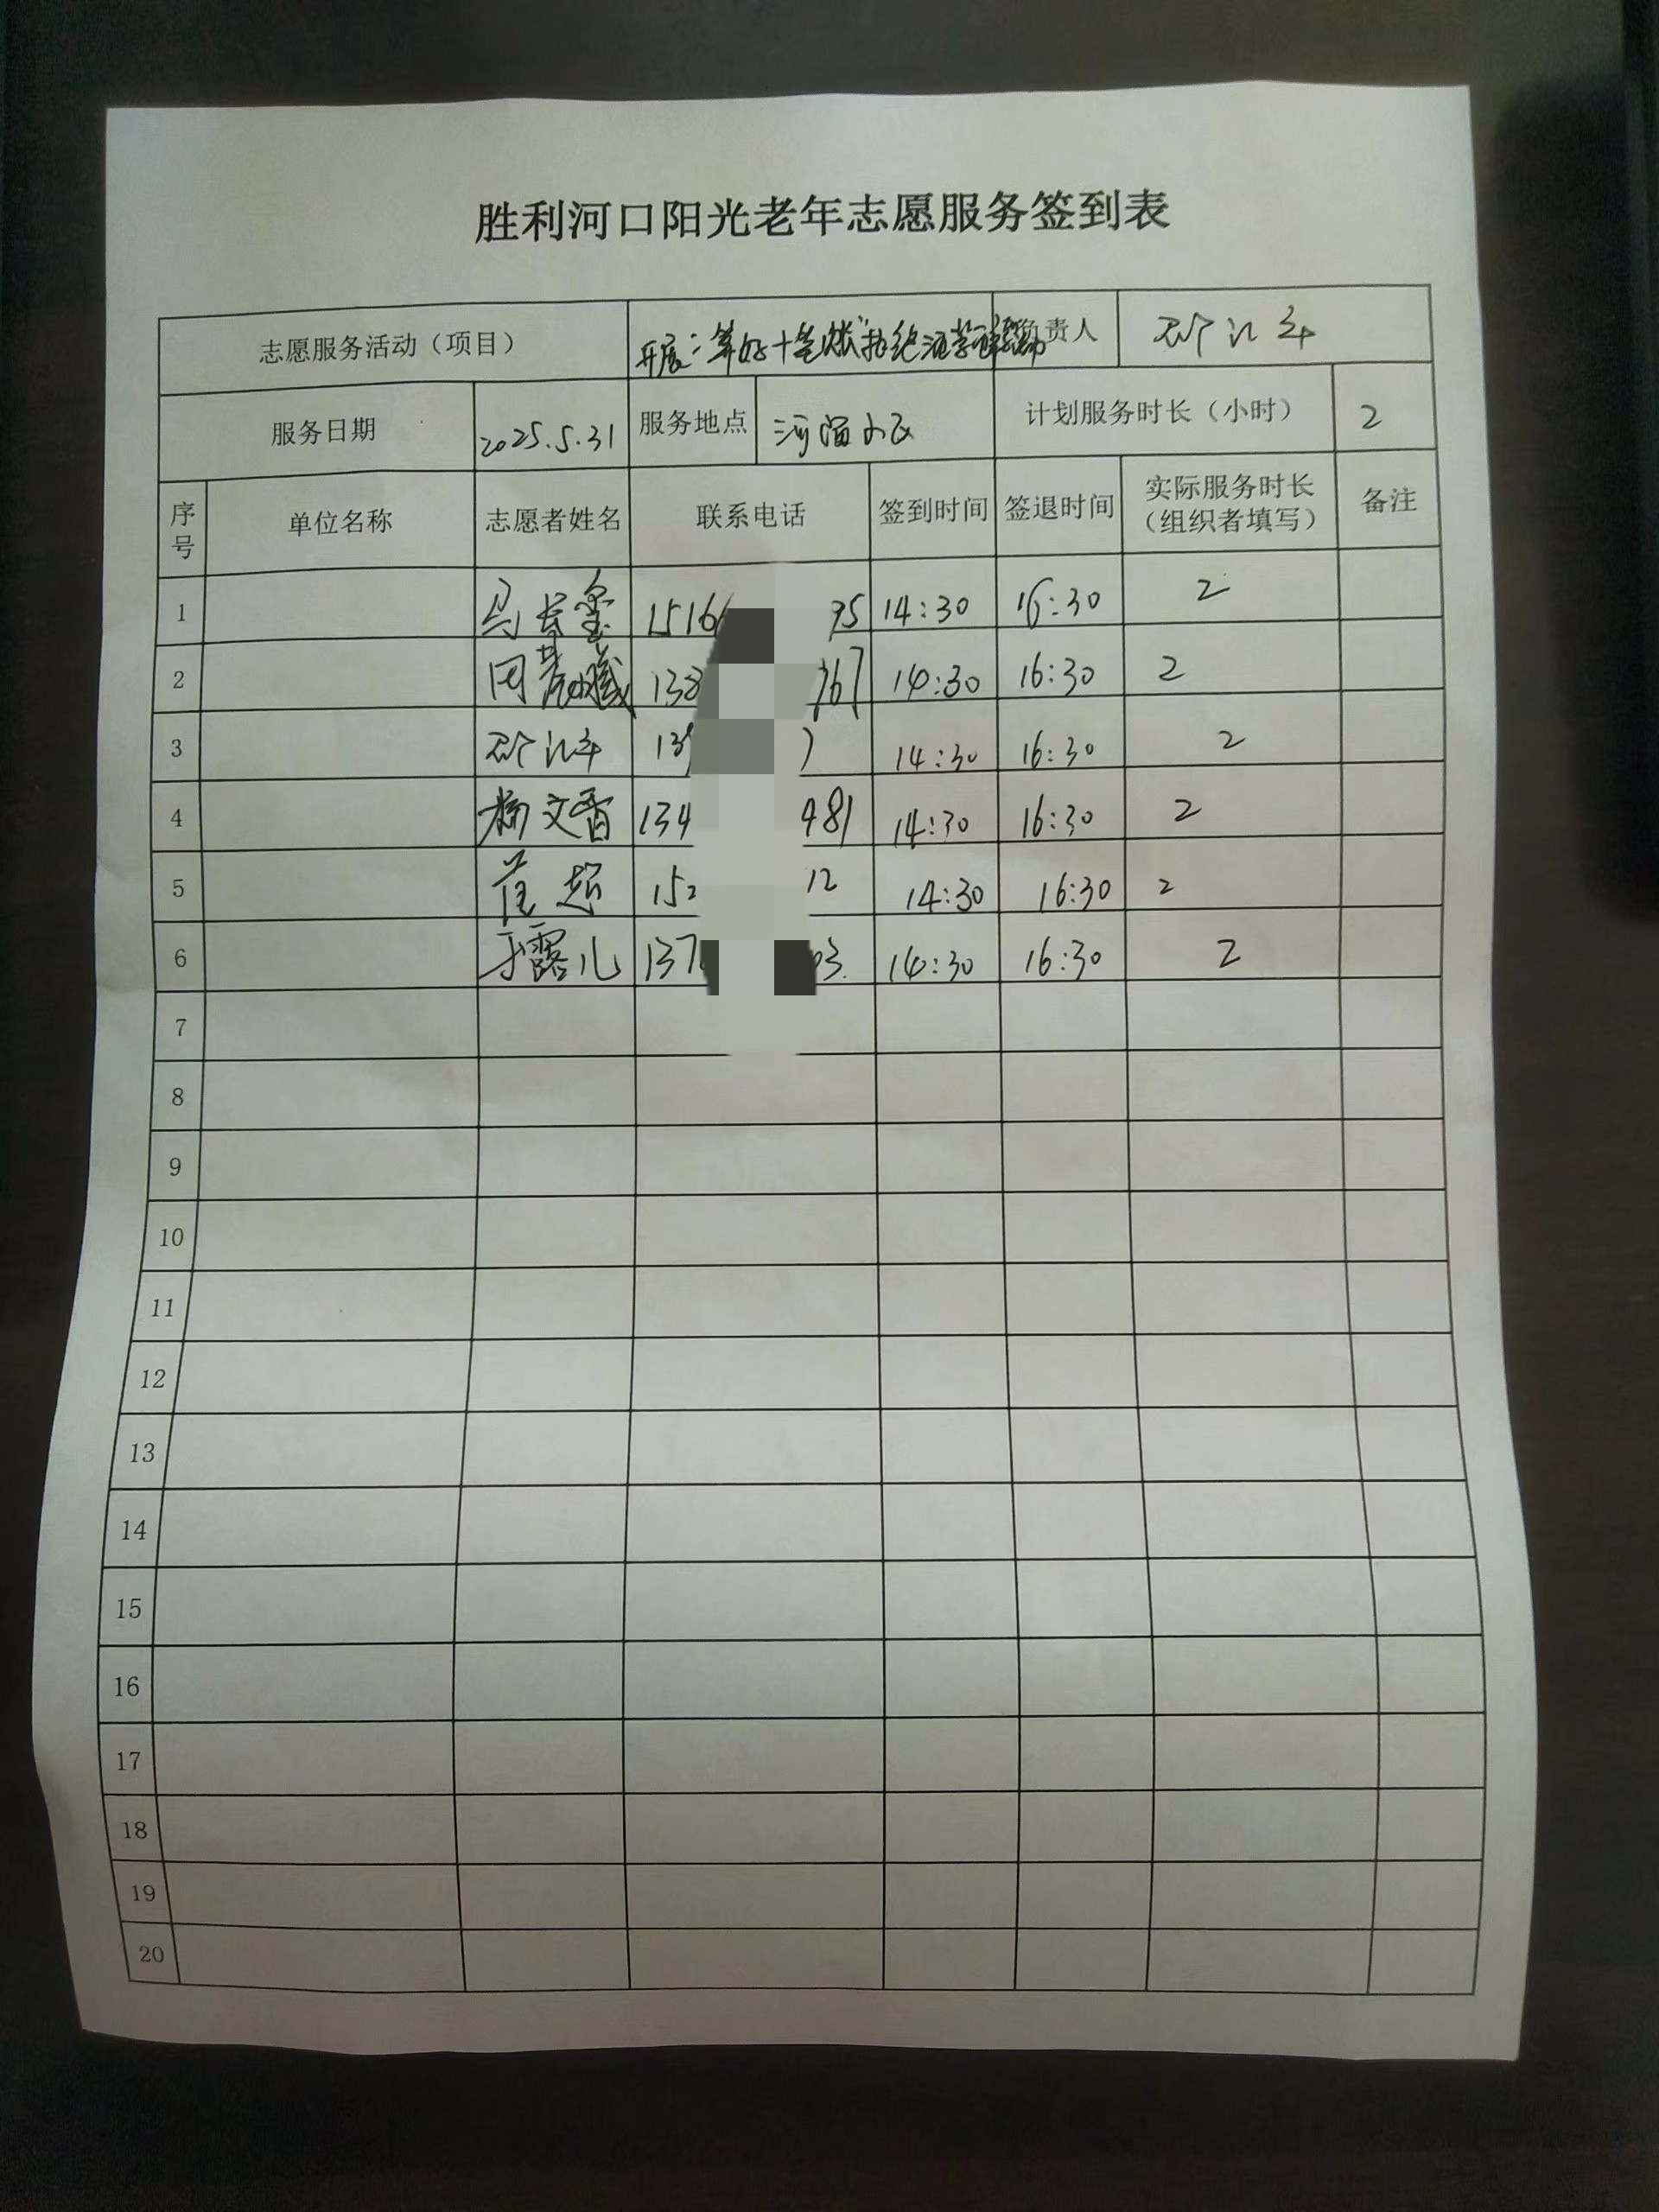 胜利河口阳光老年志愿服务签到表
志愿服务活动（项目） 开展 拒绝酒驾醉驾 负责人
服务日期 2025.5.31 服务地点 河 小区 计划服务时长（小时） 2
序号 单位名称 志愿者姓名 联系电话 签到时间 签退时间 实际服务时长（组织者填写） 备注
1 马 1516 95 14:30 16:30 2
2 138 14:30 16:30 2
3 14:30 16:30 2
4 杨文香 134 481 14:30 16:30 2
5 范超 152 12 14:30 16:30 2
6 于露儿 137 03 14:30 16:30 2
7
8
9
10
11
12
13
14
15
16
17
18
19
20